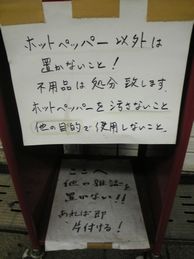 ホットペッパー以外は
置かないこと!
不用品は処分致します。
ホットペッパーを汚さないこと
他の目的で使用しないこと。
ここへ
他の雑誌を
置かない!!
あれば即
片付ける!